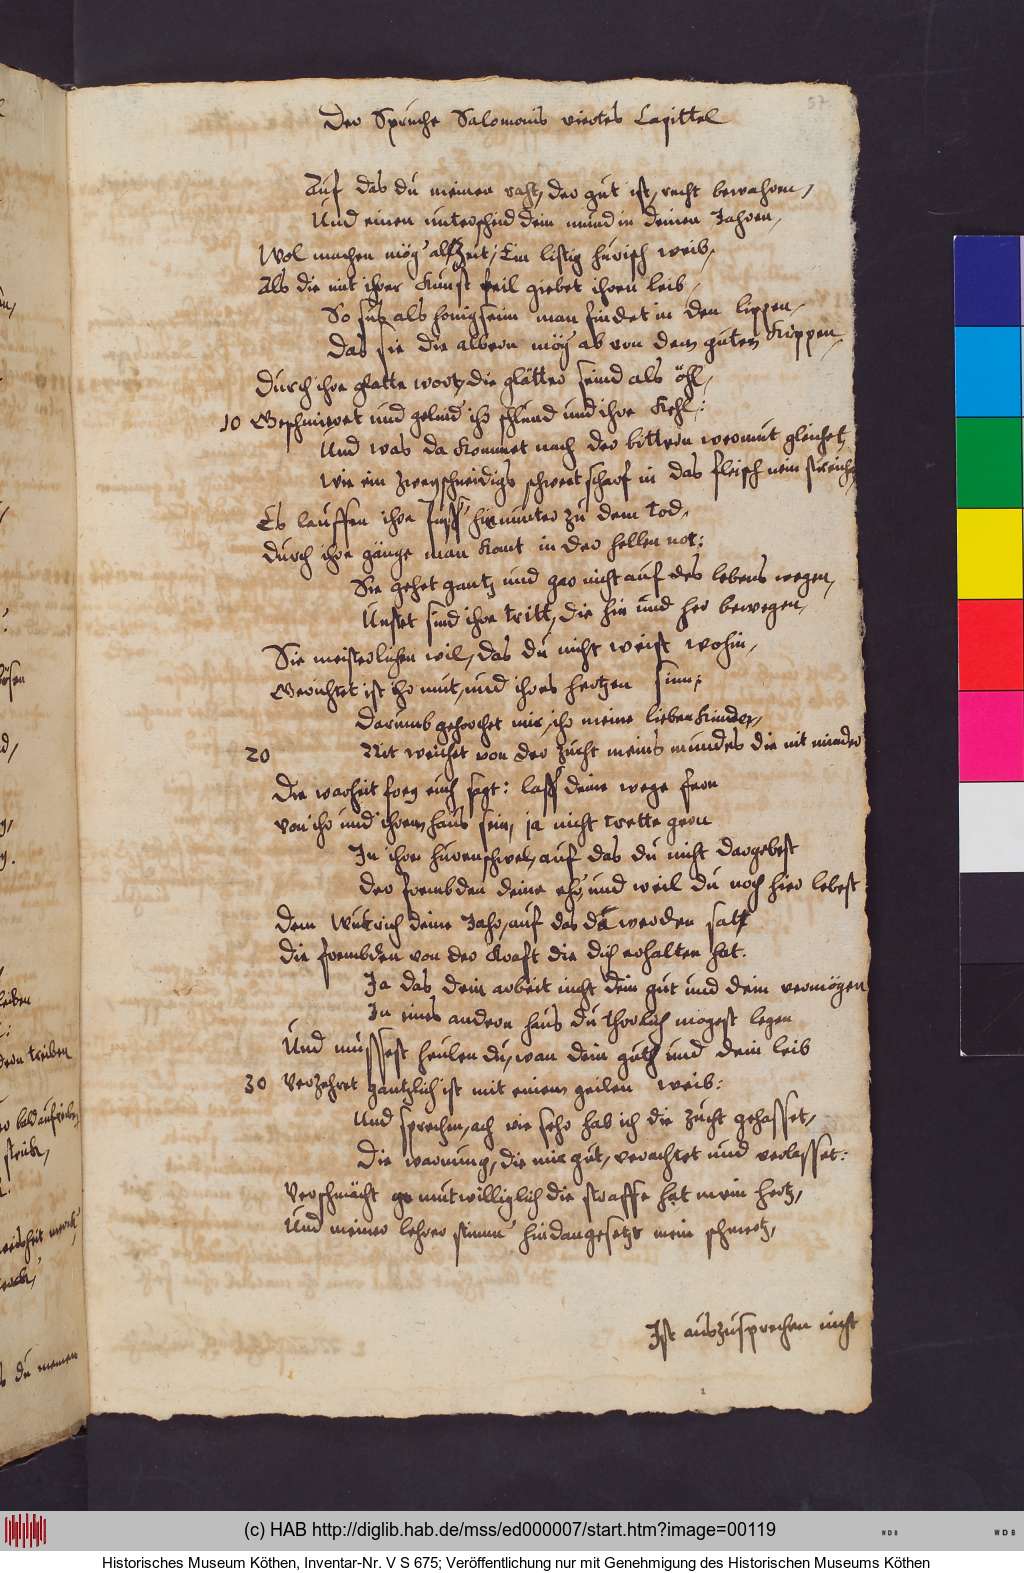 57.
Der Sprüche Salomonis viertes Capittel
Auf das du meinen raht, der gut ist, recht bewahren,
Und einen unterschied dein mund in deinen Jahren,
Wol machen mög' allzeit; Ein listig hurisch weib,
Als die mit ihrer Kunst feil giebet ihren leib,
So süß als honigseim man findet in den lippen,
Das sie die albern mög' ab von dem guten Kippen,
Durch ihre glatte wort, die glätter seind als öhl,
10 Geschmieret und gelind ihr schlund und ihre Kehl:
Und was da kommet nach der bittern wermut gleichet,
wie ein zweyschneidigs schwert scharf in das fleisch nein streichet,
Es lauffen ihre Füss' hinunter zu dem Tod,
durch ihre gänge man komt in der hellen not:
Sie gehet gantz und gar nicht auf des lebens wegen,
Unstet sind ihre tritt, die hin und her bewegen,
Sie meisterlichen wil, das du nicht weist wohin,
Gerichtet ist ihr mut, und ihres hertzen sinn;
Darumb gehorchet mir, ihr meine lieben Kinder,
20 Nit weichet von der zucht meins mundes die nit minder
Die warheit frey euch sagt: lass' deine wege fern
von ihr und ihrem haus sein, ja nicht trette gern
In ihre hurenschwel, auf das du nicht dargebest
der frembden deine ehr, und weil du noch hier lebest
dem Wütrich deine Jahr, auf das da werden satt
die frembden von der Kraft die dich erhalten hat.
Ja das dein arbeit nicht dein gut und dein vermögen
In eines andern haus du thörlich mögest legen
Und müssest heulen du, wan dein guth und dein leib
30 Verzehret gäntzlich ist mit einem geilen weib:
Und sprechen, ach wie sehr hab ich die zucht gehasset,
Die warnung, die mir gut, verachtet und verlasset:
Verschmächt mutwilliglich die straffe hat mein hertz,
Und meiner lehrer stimm' hindangesetzt mein schmertz,
Ist auszusprechen nicht
(c) HAB http://diglib.hab.de/mss/ed000007/start.htm?image=00119
Historisches Museum Köthen, Inventar-Nr. V S 675; Veröffentlichung nur mit Genehmigung des Historischen Museums Köthen